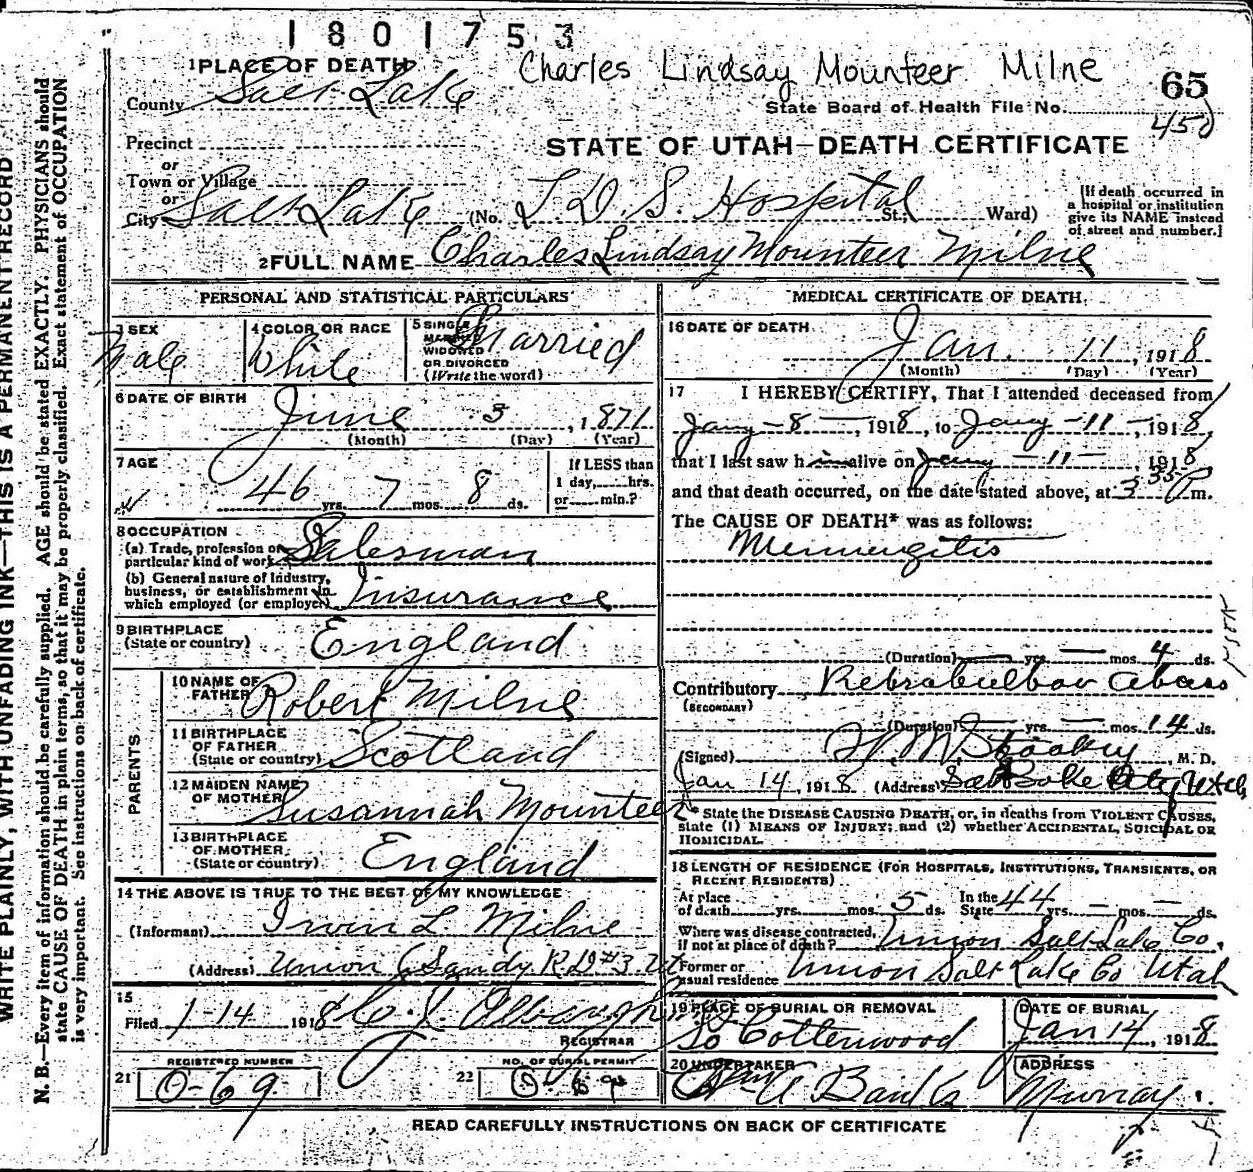 1801753
Charles Lindsay Mounteer Milne
65
State Board of Health File No.
450
STATE OF UTAH—DEATH CERTIFICATE
1 PLACE OF DEATH
County Salt Lake
Precinct
or
Town or Village
or
City Salt Lake (No. L D. S. Hospital St.; Ward)
[If death occurred in
a hospital or institution
give its NAME instead
of street and number.]
2 FULL NAME Charles Lindsay Mounteer Milne
PERSONAL AND STATISTICAL PARTICULARS
3 SEX
Male
4 COLOR OR RACE
White
5 SINGLE
MARRIED
WIDOWED
OR DIVORCED
(Write the word)
Married
6 DATE OF BIRTH
June 3, 1871
(Month) (Day) (Year)
7 AGE
46 yrs. 7 mos. 8 ds.
If LESS than
1 day, hrs.
or min.?
8 OCCUPATION
(a) Trade, profession or
particular kind of work Salesman
(b) General nature of Industry,
business, or establishment in
which employed (or employer) Insurance
9 BIRTHPLACE
(State or country) England
PARENTS
10 NAME OF
FATHER Robert Milne
11 BIRTHPLACE
OF FATHER
(State or country) Scotland
12 MAIDEN NAME
OF MOTHER Susannah Mounteer
13 BIRTHPLACE
OF MOTHER
(State or country) England
14 THE ABOVE IS TRUE TO THE BEST OF MY KNOWLEDGE
(Informant) Irwin L. Milne
(Address) Union (Sandy R.D #3 Ut
15
Filed 1-14 1918 C. J. Albaugh
REGISTRAR
REGISTERED NUMBER
21 O-69
NO. OF BURIAL PERMIT
22 O-69
MEDICAL CERTIFICATE OF DEATH.
16 DATE OF DEATH
Jan. 11, 1918
(Month) (Day) (Year)
17 I HEREBY CERTIFY, That I attended deceased from
Jany-8, 1918, to Jany-11-1918,
that I last saw him alive on Jany-11-, 1918
and that death occurred, on the date stated above, at 3 35 P m.
The CAUSE OF DEATH* was as follows:
Meningitis
(Duration) — yrs. — mos. 4 ds.
Contributory Retrobulbar abcess
(SECONDARY)
(Duration) — yrs. — mos. 14 ds.
(Signed) Stookey, M. D.
Jan 14, 1918 (Address) Salt Lake City Utah
* State the DISEASE CAUSING DEATH, or, in deaths from VIOLENT CAUSES,
state (1) MEANS OF INJURY; and (2) whether ACCIDENTAL, SUICIDAL OR
HOMICIDAL.
18 LENGTH OF RESIDENCE (FOR HOSPITALS, INSTITUTIONS, TRANSIENTS, OR
RECENT RESIDENTS)
At place
of death yrs. mos. 5 ds.
In the
State 44 yrs. — mos. — ds.
Where was disease contracted,
if not at place of death? Union Salt Lake Co.
Former or
usual residence Union Salt Lake Co Utah
19 PLACE OF BURIAL OR REMOVAL
So Cottonwood
DATE OF BURIAL
Jan 14, 1918
20 UNDERTAKER
Wm A Banks
ADDRESS
Murray
READ CAREFULLY INSTRUCTIONS ON BACK OF CERTIFICATE
WRITE PLAINLY, WITH UNFADING INK—THIS IS A PERMANENT RECORD
N. B.—Every item of information should be carefully supplied. AGE should be stated EXACTLY. PHYSICIANS should
state CAUSE OF DEATH in plain terms, so that it may be properly classified. Exact statement of OCCUPATION
is very important. See instructions on back of certificate.